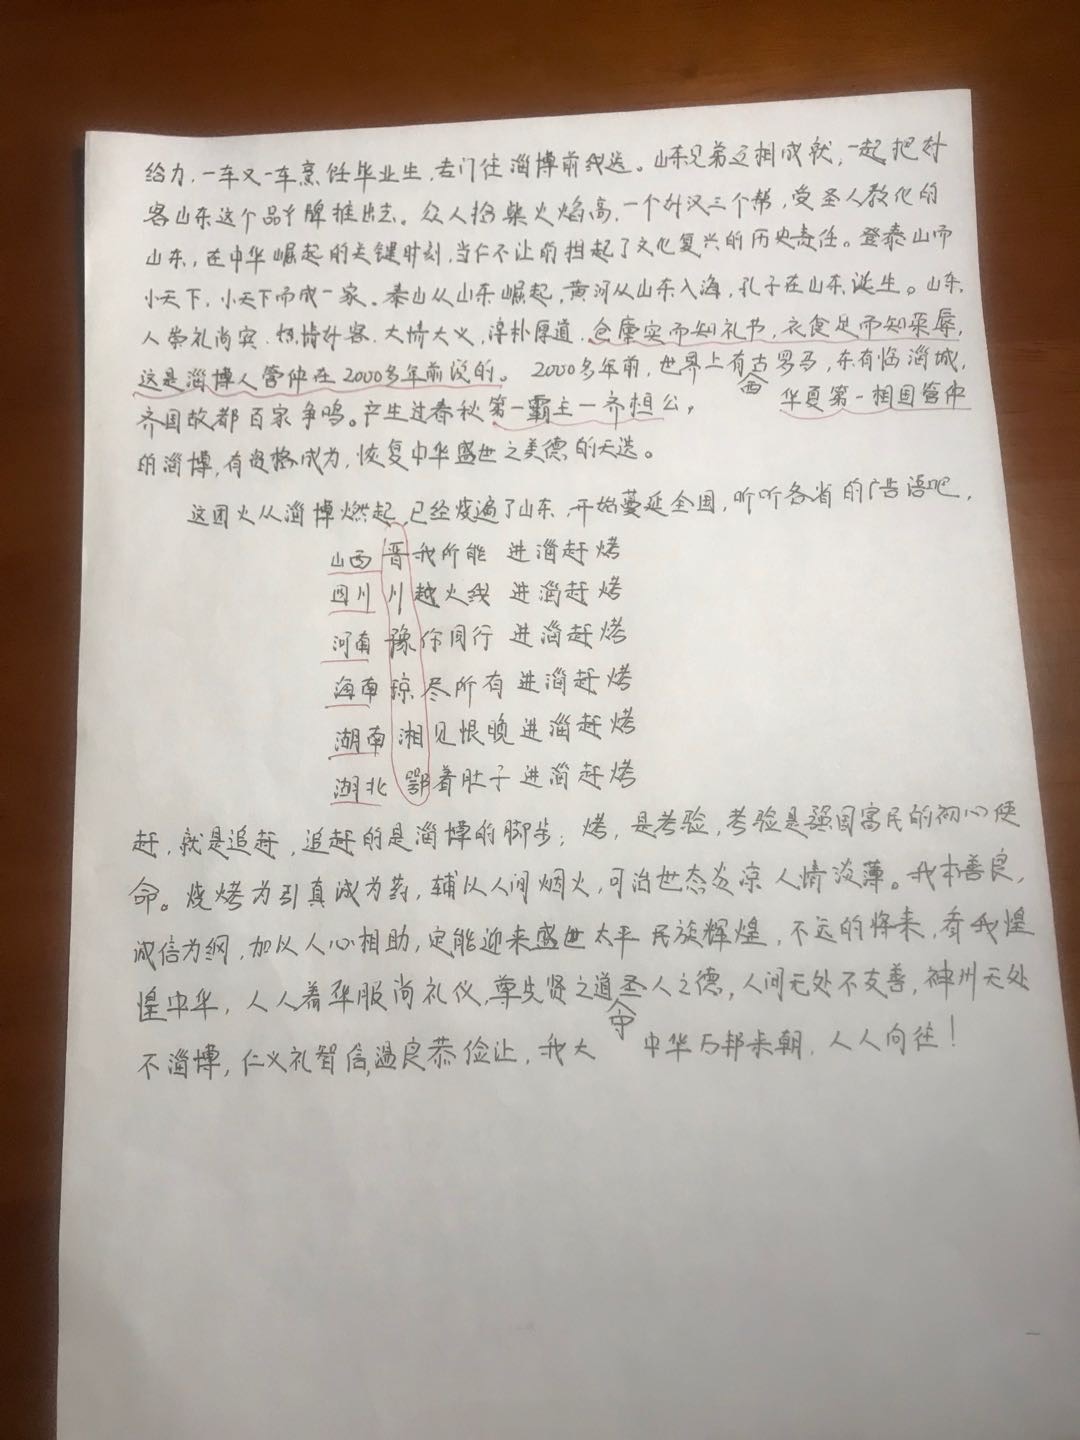 给力,一车又一车烹饪毕业生,专门往淄博前线送。山东兄弟互相成就,一起把好
客山东这个品牌推出去。众人拾柴火焰高,一个好汉三个帮,受圣人教化的
山东,在中华崛起的关键时刻,当仁不让的担起了文化复兴的历史责任。登泰山而
小天下,小天下而成一家。泰山从山东崛起,黄河从山东入海,孔子在山东诞生。山东
人崇礼尚宾,热情好客,大情大义,淳朴厚道,仓廪实而知礼节,衣食足而知荣辱,
这是淄博人管仲在2000多年前说的。2000多年前,世界上西有古罗马,东有临淄城,
齐国故都百家争鸣。产生过春秋第一霸主一齐桓公, 华夏第一相国管仲
的淄博,有资格成为,恢复中华盛世之美德的天选。
这团火从淄博燃起,已经烧遍了山东,开始蔓延全国,听听各省的广告语吧,
山西 晋我所能 进淄赶烤
四川 川越火线 进淄赶烤
河南 豫你同行 进淄赶烤
海南 琼尽所有 进淄赶烤
湖南 湘见恨晚 进淄赶烤
湖北 鄂着肚子 进淄赶烤
赶,就是追赶,追赶的是淄博的脚步;烤,是考验,考验是强国富民的初心使
命。烧烤为引真诚为药,辅以人间烟火,可治世态炎凉人情淡薄。我本善良,
诚信为纲,加以人心相助,定能迎来盛世太平民族辉煌,不远的将来,看我煌
煌中华,人人着华服尚礼仪,尊先贤之道守圣人之德,人间无处不友善,神州无处
不淄博,仁义礼智信,温良恭俭让,我大 中华万邦来朝,人人向往!